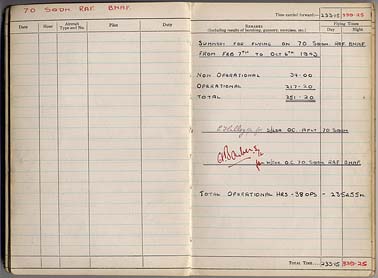 70 SQDN. RAF. BNAF.
Date Hour Aircraft Type and No. Pilot Duty
Time carried forward:— 233·15 339·25
REMARKS
(Including results of bombing, gunnery, exercises, etc.)
Flying Times
Day Night
SUMMARY FOR FLYING ON 70 SQDN. RAF. BNAF.
FROM FEB 7TH TO OCT 6TH 1943
NON OPERATIONAL 34-00
OPERATIONAL 217-20
TOTAL 251-20
O.C. 70 SQDN
O.C. 70 SQDN RAF BNAF.
TOTAL OPERATIONAL HRS - 38 OPS -
TOTAL TIME 233·15 339·25